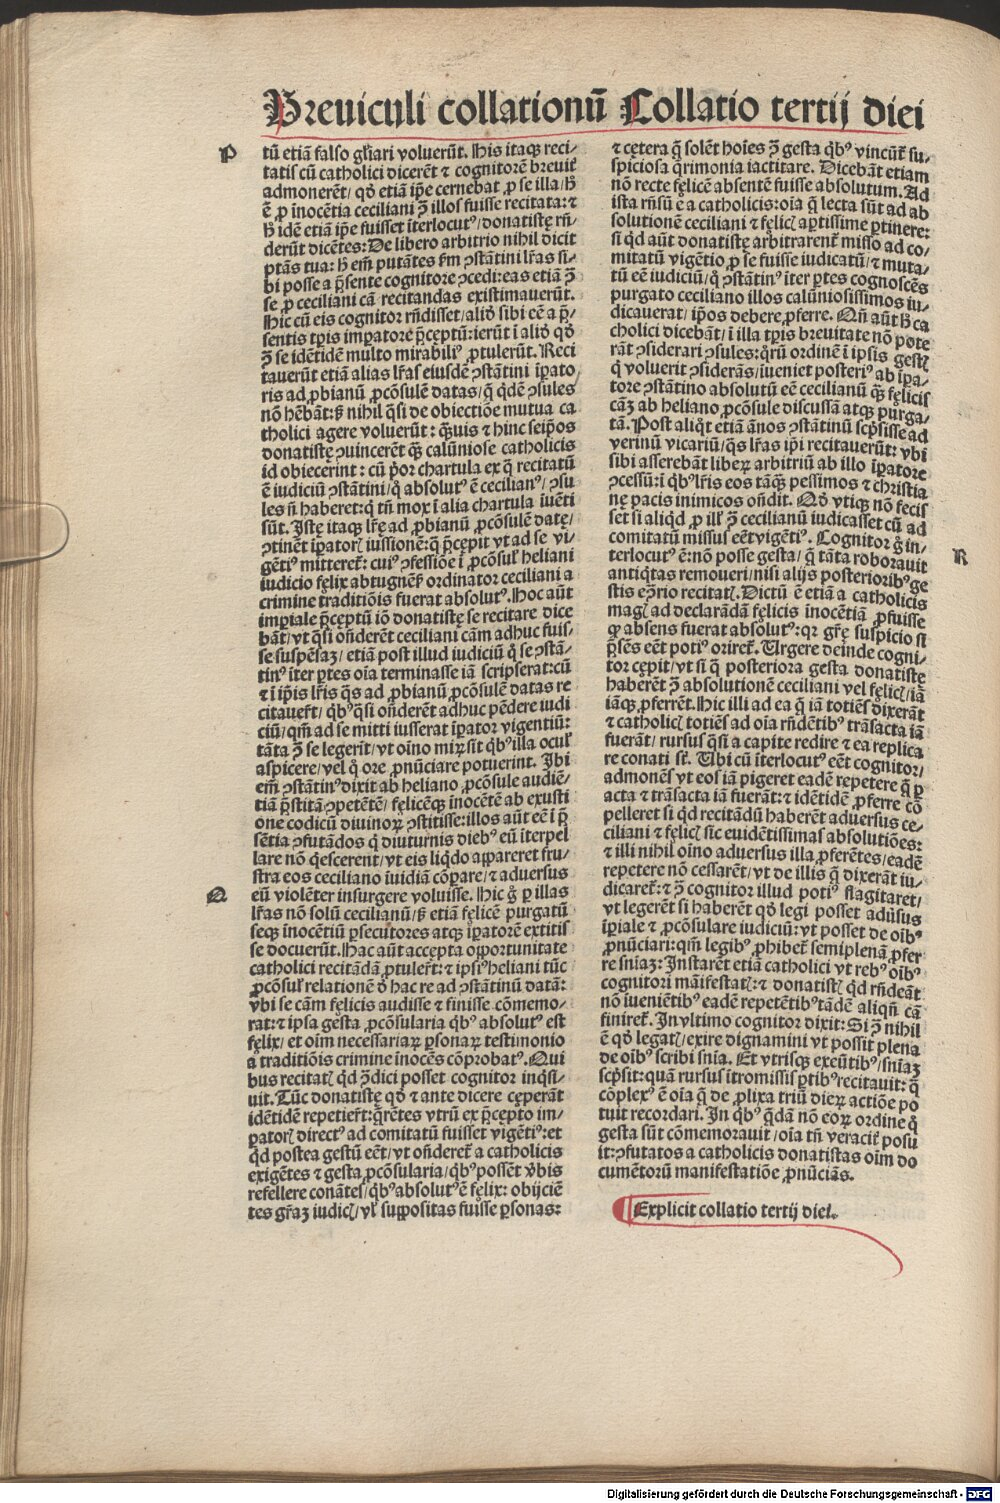 Breuiculi collationū Collatio tertij diei
P
tū etiā falso gl̄iari voluerūt. His itaqꝫ reci⸗
tatis cū catholici dicerēt ⁊ cognitorē breuit̄
admonerēt/ qđ etiā ip̄e cernebat ꝓ se illa/ h̄
ē ꝓ īnocētia ceciliani ꝯ̄ illos fuisse recitata: ⁊
h̄ idē etiā ip̄e fuisset īterlocutꝰ/ donatistę rn̄⸗
derūt dicētes: De libero arbitrio nihil dicit
p̄tās tua: h̄ em̄ putātes fm̄ ꝯstātini lr̄as si⸗
bi posse a p̄sente cognitore ꝯcedi: eas etiā ꝯ̄
se ꝓ ceciliani cā recitandas existimauerūt.
Hic cū eis cognitor rn̄disset/ aliđ sibi eē a p̄⸗
sentis tp̄ris imꝑatore p̄ceptū: ierūt ī aliđ qđ
ꝯ̄ se idētidē multo mirabiliꝰ ꝓtulerūt. Reci
tauerūt etiā alias lr̄as eiusdē ꝯstātini īꝑato⸗
ris ad ꝓbianū ꝓcōsulē datas/ q̄ qđē ꝯsules
nō hēbāt: ꝫ nihil q̄si de obiectiōe mutua ca
tholici agere voluerūt: q̄uis ⁊ hinc seip̄os
donatistę ꝯuincerēt q̄ꝫ calūniose catholicis
id obiecerint: cū p̄or chartula ex q̄ recitatū
ē iudiciū ꝯstātini/ q̊ absolutꝰ ē cecilianꝰ/ ꝯsu
les n̄ haberet: q̄ tn̄ mox ī alia chartula īuēti
sūt. Istę itaqꝫ lr̄ę ad ꝓbianū ꝓcōsulē datę/
ꝯtinēt īꝑatorꝭ iussionē: q̄ p̄cepit vt ad se vi⸗
gētiꝰ mitteret̄: cuiꝰ ꝯfessiōe ī ꝓcōsul̄ heliani
iudicio fęlix abtugnēs̄ ordinator ceciliani a
crimine traditiōis fuerat absolutꝰ. Hoc aūt
imꝑiale p̄ceptū iō donatistę se recitare dice
bāt/ vt q̄si on̄derēt ceciliani cām adhuc fuis⸗
se suspēsaꝫ/ etiā post illud iudiciū q̊ se ꝯstā⸗
tinꝰ īter ꝑtes oīa terminasse iā scripserat: cū
⁊ ī ip̄is lr̄is q̄s ad ꝓbianū ꝓcōsulē datas re
citauer̄t/ qb̄ꝰ q̄si on̄derēt adhuc pēdere iudi
ciū/ qm̄ ad se mitti iusserat īꝑator vigentiū:
tāta ꝯ̄ se legerīt/ vt oīno miꝝ sit qb̄ꝰ illa ocul̄
aspicere/ vel q̊ ore ꝓnūciare potuerint. Ibi
em̄ ꝯstātinꝰ dixit ab heliano ꝓcōsule audiē⸗
tiā p̄stitā ꝯpetētē/ fęlicēqꝫ inocētē ab exusti
one codicū diuinoꝝ ꝯstitisse: illos aūt eē ī p̄
sētia ꝯfutādos q̊ diuturnis diebꝰ eū īterpel
lare nō q̄escerent/ vt eis liqdo appareret fru⸗
stra eos ceciliano īuidiā cōpare/ ⁊ aduersus
Q
eū violēter insurgere voluisse. Hic g̊ ꝑ illas
lr̄as nō solū cecilianū/ ꝫ etiā fęlicē purgatū
seqꝫ inocētiū ꝑsecutores atqꝫ īꝑatorē extitis
se docuerūt. Hac aūt accepta opportunitate
catholici recitādā ꝓtuler̄t: ⁊ ipsiꝰ heliani tūc
ꝓcōsul̄ relationē đ hac re ad ꝯstātinū datā:
vbi se cām fęlicis audisse ⁊ finisse cōmemo⸗
rat: ⁊ ipsa gesta ꝓcōsularia qb̄ꝰ absolutꝰ est
fęlix/ et oīm necessariaꝝ ꝑsonaꝝ testimonio
a traditiōis crimine inocēs cōprobatꝰ. Qui
bus recitatꝭ qđ ꝯ̄dici posset cognitor inqsi⸗
uit. Tūc donatistę qđ ⁊ ante dicere cęperāt
idētidē repetier̄t: q̄rētes vtrū ex p̄cepto im⸗
ꝑatorꝭ directꝰ ad comitatū fuisset vigētiꝰ: et
qđ postea gestū eēt/ vt on̄deret̄ a catholicis
exigētes ⁊ gesta ꝓcōsularia/ qb̄ꝰ possēt v̄bis
refellere conātes/ qb̄ꝰ absolutꝰ ē fęlix: obijciē
tes gr̄aꝫ iudicꝭ/ vl̄ suppositas fuisse ꝑsonas:
⁊ cętera q̄ solēt hoīes ꝯ̄ gesta qb̄ꝰ vincūt̄ su⸗
spiciosa q̄rimonia iactitare. Dicebāt etiam
nō recte fęlicē absentē fuisse absolutum. Ad
ista rn̄sū ē a catholicis: oīa q̄ lecta sūt ad ab
solutionē ceciliani ⁊ fęlicꝭ aꝑtissime ꝑtinere:
si qđ aūt donatistę arbitrarent̄ misso ad co⸗
mitatū vigētio ꝓ se fuisse iudicatū/ ⁊ muta⸗
tū eē iudiciū/ q̊ ꝯstātinꝰ īter ꝑtes cognoscēs
purgato ceciliano illos calūniosissimos iu⸗
dicauerat/ ip̄os debere ꝓferre. Qn̄ aūt h̄ ca
cholici dicebāt/ ī illa tp̄ris breuitate nō pote
rāt ꝯsiderari ꝯsules: qrū ordinē ī ipsis gestꝭ
q̊ voluerit ꝯsiderās/ īueniet posteriꝰ ab īꝑa⸗
tore ꝯstātino absolutū eē cecilianū q̄ꝫ fęlicis
cāꝫ ab heliano ꝓcōsule discussā atqꝫ purga⸗
tā. Post aliqt etiā ānos ꝯstātinū scp̄sisse ad
verinū vicariū/ q̄s lr̄as ip̄i recitauerūt: vbi
sibi asserebāt liberꝝ arbitriū ab illo īꝑatore
ꝯcessū: ī qb̄ꝰ lr̄is eos tāq̄ꝫ pessimos ⁊ christia
nę pacis inimicos on̄dit. Qđ vtiqꝫ nō fecis
set si aliqđ ꝓ illꝭ ꝯ̄ cecilianū iudicasset cū ad
comitatū missus eēt vigētiꝰ. Cognitor g̊ in⸗
R
terlocutꝰ ē: nō posse gesta/ q̄ tāta roborauit
antiqtas remoueri/ nisi alijs posterioribꝰ ge
stis eꝯ̄rio recitatꝭ. Dictū ē etiā a catholicis
magꝭ ad declarādā fęlicis inocētiā ꝓfuisse
ꝙ absens fuerat absolutꝰ: qr gr̄ę suspicio si
p̄sēs eēt potiꝰ oriret̄. Urgere deinde cogni⸗
tor cępit/ vt si q̄ posteriora gesta donatistę
haberēt ꝯ̄ absolutionē ceciliani vel fęlicꝭ/ iā
iāqꝫ ꝓferrēt. Hic illi ad ea q̄ iā totiēs dixerāt
⁊ catholicꝭ totiēs ad oīa rn̄dētibꝰ trāsacta iā
fuerāt/ rursus q̄si a capite redire ⁊ ea replica
re conati st̄. Ubi cū īterlocutꝰ eēt cognitor/
admonēs vt eos iā pigeret eadē repetere q̄ ꝑ
acta ⁊ trāsacta iā fuerāt: ⁊ idētidē ꝓferre cō
pelleret si qđ recitādū haberēt aduersus ce⸗
ciliani ⁊ fęlicꝭ sic euidētissimas absolutiōes:
⁊ illi nihil oīno aduersus illa ꝓferētes/ eadē
repetere nō cessarēt/ vt de illis q̄ dixerāt iu⸗
dicaret̄: ⁊ ꝯ̄ cognitor illud potiꝰ flagitaret/
vt legerēt si haberēt qđ legi posset aduersus
īꝑiale ⁊ ꝓcōsulare iudiciū: vt posset de oībꝰ
ꝓnūciari: qm̄ legibꝰ ꝓhibet̄ semiplenā ꝓfer
re sn̄iaꝫ: Instarēt etiā catholici vt rebꝰ oībꝰ
cognitori māifestatꝭ: ⁊ donatistꝭ qđ rn̄deāt
nō iueniētibꝰ eadē repetētibꝰ tādē aliqn̄ cā
finiret̄. In vltimo cognitor dixit: Si ꝯ̄ nihil
ē qđ legatꝭ/ exire dignamini vt possit plena
de oībꝰ scribi sn̄ia. Et vtrisqꝫ exeūtibꝰ/ sn̄iaꝫ
scp̄sit: quā rursus ītromissis ꝑtibꝰ recitauit: q̄
cōplexꝰ ē oīa q̄ de ꝓlixa triū dieꝝ actiōe po
tuit recordari. In qb̄ꝰ q̄dā nō eoꝝ ordine q̊
gesta sūt cōmemorauit/ oīa tn̄ veracit̄ posu
it: ꝯfutatos a catholicis donatistas oīm do
cumētorū manifestatiōe ꝓnūciās.
Explicit collatio tertij diei.
Digitalisierung gefördert durch die Deutsche Forschungsgemeinschaft - DFG